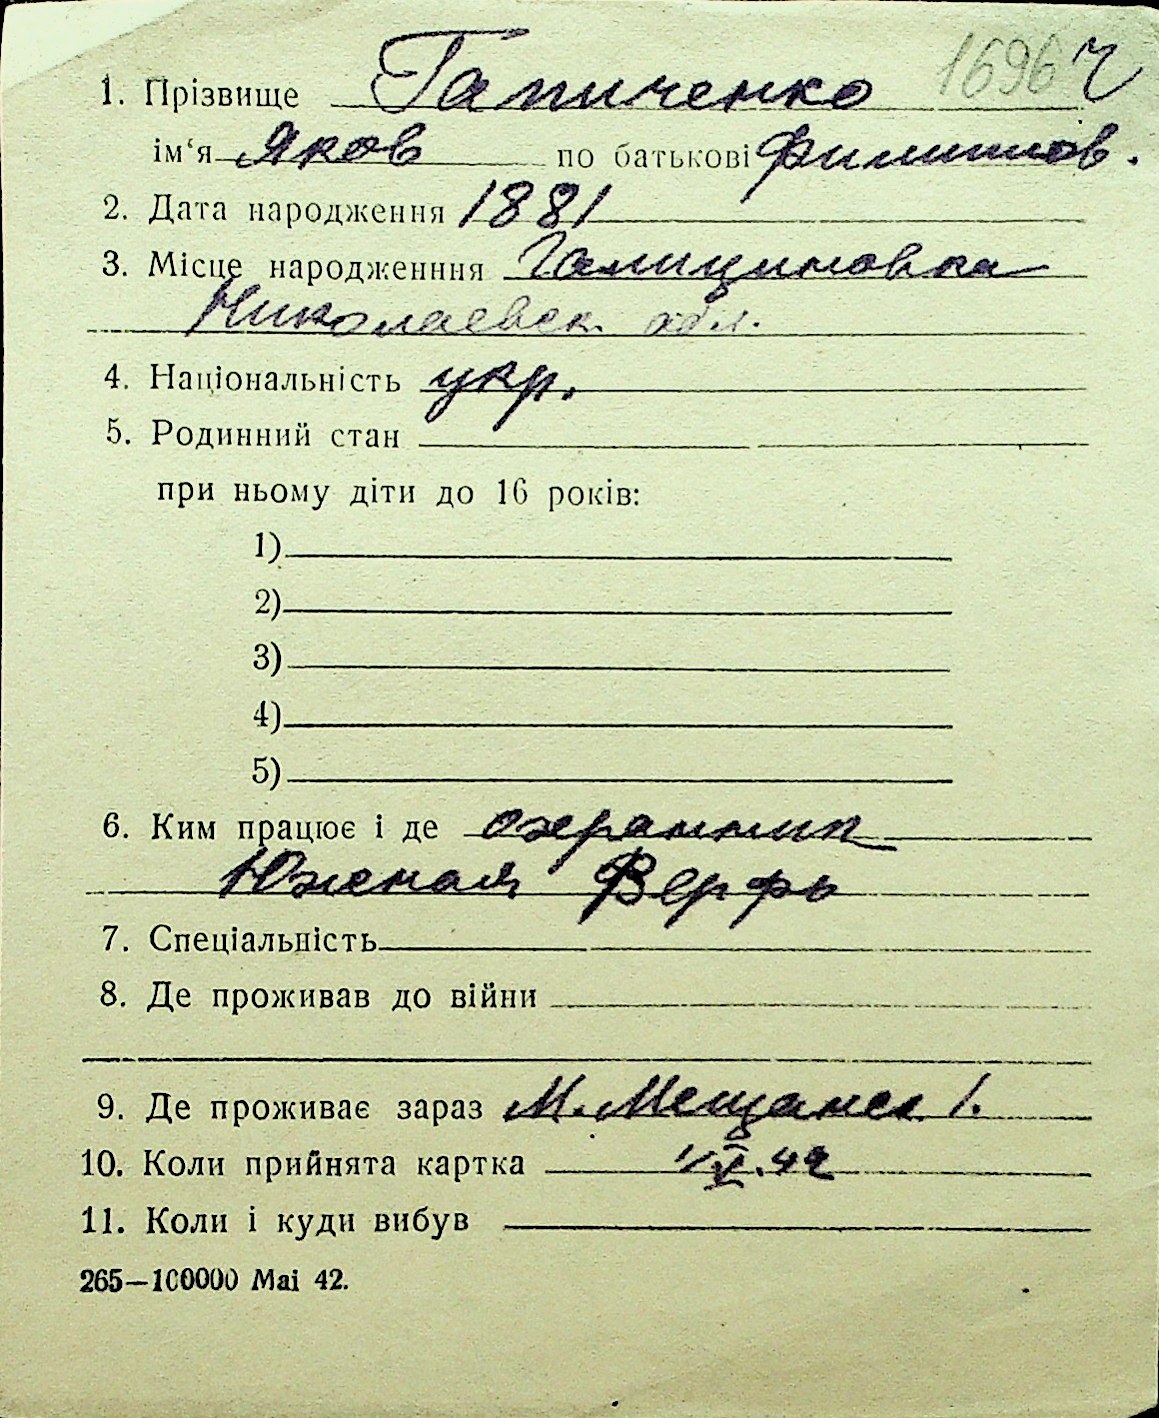 1. Прізвище Гапиченко 1696 ч
ім‘я Яков по батькові Филиппов.
2. Дата народження 1881
3. Місце народженння Галициновка
Николаевск. обл.
4. Національність укр.
5. Родинний стан
при ньому діти до 16 років:
1)
2)
3)
4)
5)
6. Ким працює і де охранник
Южная Верфь
7. Спеціальність
8. Де проживав до війни
9. Де проживає зараз М. Мещанск 1.
10. Коли прийнята картка 1/V.42
11. Коли і куди вибув
265—100000 Mai 42.